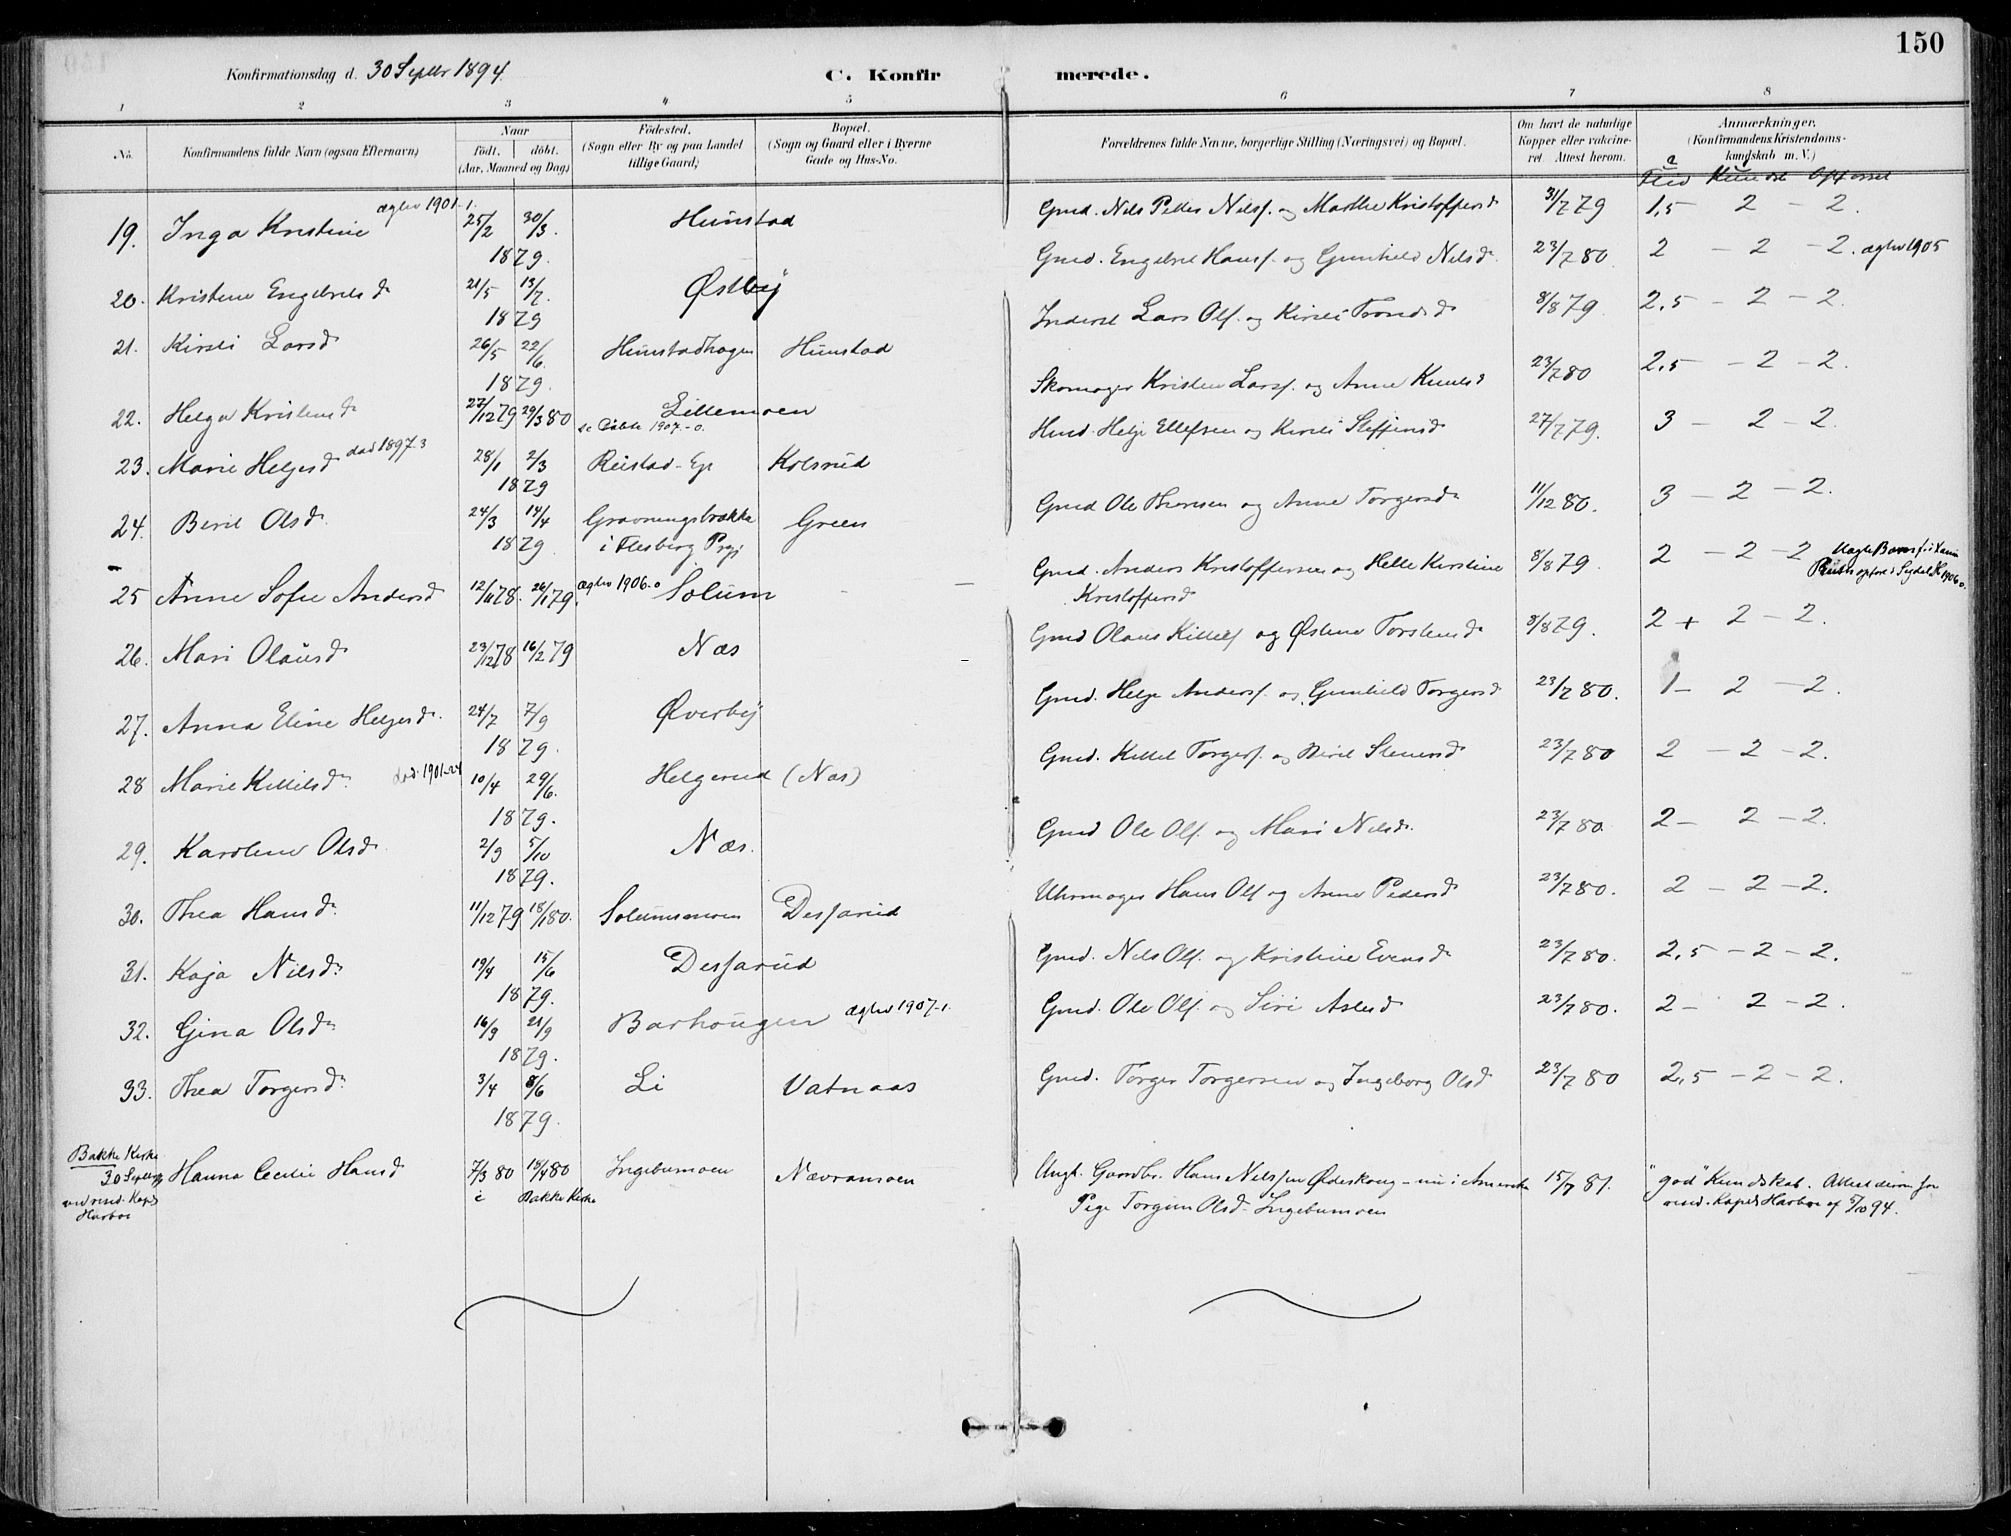 150
Konfirmationsdag d. 30 Septbr 1894.
C. Konfirmerede.
1 2 3 4 5 6 7 8
No. Konfirmandens fulde Navn (ogsaa Efternavn) Naar født. døbt. (Aar, Maaned og Dag) Födested. (Sogn eller By og paa Landet tillige Gaard) Bopæl. (Sogn og Gaard eller i Byerne Gade og Hus-No. Forældrenes fulde Navne, borgerlige Stilling (Næringsvei) og Bopæl. Om havt de naturlige Kopper eller vakcineret Attest herom. Anmærkninger. (Konfirmandens Kristendomskundskab m. V.)
19. Inga Kristine ægtev 1901-1. 25/2 30/3 1879. Hunstad Gmd. Nils Peder Nilsf. og Marthe Kristoffersd 31/7 79 1,5 - 2 - 2.
20. Kristine Engebretsd 21/5 13/7 1879 Østby Gmd. Engebret Hansf. og Gunhild Nilsd. 23/7 80 2 - 2 - 2. ægtev 1905
21. Kirsti Larsd 26/5 22/6 1879. Hunstadhagen Hunstad Inderst Lars Olf. og Kirsti Trondsd 8/8 79. 2,5 - 2 - 2.
22. Helga Kristensd 27/12 79 29/3 80 Lillemoen se Døbte 1907.-0. Skomager Kristen Larsf. og Anne Knutsd 23/7 80 2,5 - 2 - 2.
23. Marie Helgesd død 1897 3 28/1 2/3 1879 Reistad-Eje Kolsrud Husd. Helje Ellefsen og Kirsti Steffensd 27/7 79. 3 - 2 - 2.
24. Berit Olsd. 24/3 14/4 1879. Gravningsbrække i Flesberg Prgj Green Gmd Ole Thoresen og Anne Torgersd 11/12 80. 3 - 2 - 2.
25 Anne Sofie Andersd 12/11 78. 26/1 79. ægtev 1906-0 Solum Gmd. Anders Kristoffersen og Helle Kirstine Kristoffersd 8/8 79. 2 - 2 - 2
26. Mari Olausd 23/12 78 16/2 79 Næs Gmd Olaus Kittilsf og Østine Torstensd 8/8 79. 2 + 2 - 2.
27. Anna Eline Helgesd. 24/7 7/9 1879. Øverby Gmd. Helje Andersf. og Gunhild Torgersd 23/7 80. 1 - 2 - 2.
28 Marie Kittilsd. død 1901-24 10/4 29/6. 1879. Helgerud (Næs) Gmd. Kittel Torgersf. og Berit Stenersd 23/7 80 2 - 2 - 2.
29. Karoline Olsd 2/9 5/10 1879. Næs. Gmd Ole Olf. og Mari Nilsd. 23/7 80. 2 - 2 - 2.
30. Thea Hansd. 11/12 79 18/1 80. Solumsmoen Desjarud Uhrmager Hans Olf og Anne Pedersd 23/7 80. 2 - 2 - 2.
31. Kaja Nilsd. 19/4 15/6 1879. Desjarud Gmd. Nils Olf. og Kristine Evensd 23/7 80. 2,5 - 2 - 2.
32. Gina Olsd 16/9 21/9 1879. Barhougen ægtev 1907-1. Gmd. Ole Olf. og Siri Aslesd 23/7 80. 2 - 2 - 2.
33. Thea Torgersd. 3/4 8/6 1879. Li Vatnaas Gmd. Torger Torgersen og Ingeborg Olsd 23/7 80 2,5 - 2 - 2.
Bakke Kirke 30 Septbr ved resid. Kap. Harboe Hanna Cecilie Hansd 7/3 80 18/4 80 i Bakke Kirke Ingebumoen Nævramoen Ungk. Gaardbr. Hans Nilssen Ødeskoug - nu i Amerika Pige Torgun Olsd Ingebumoen 15/7 81. "god" Kundskab. Attest derom fra resid. Kap. Harboe af 5/10 94.